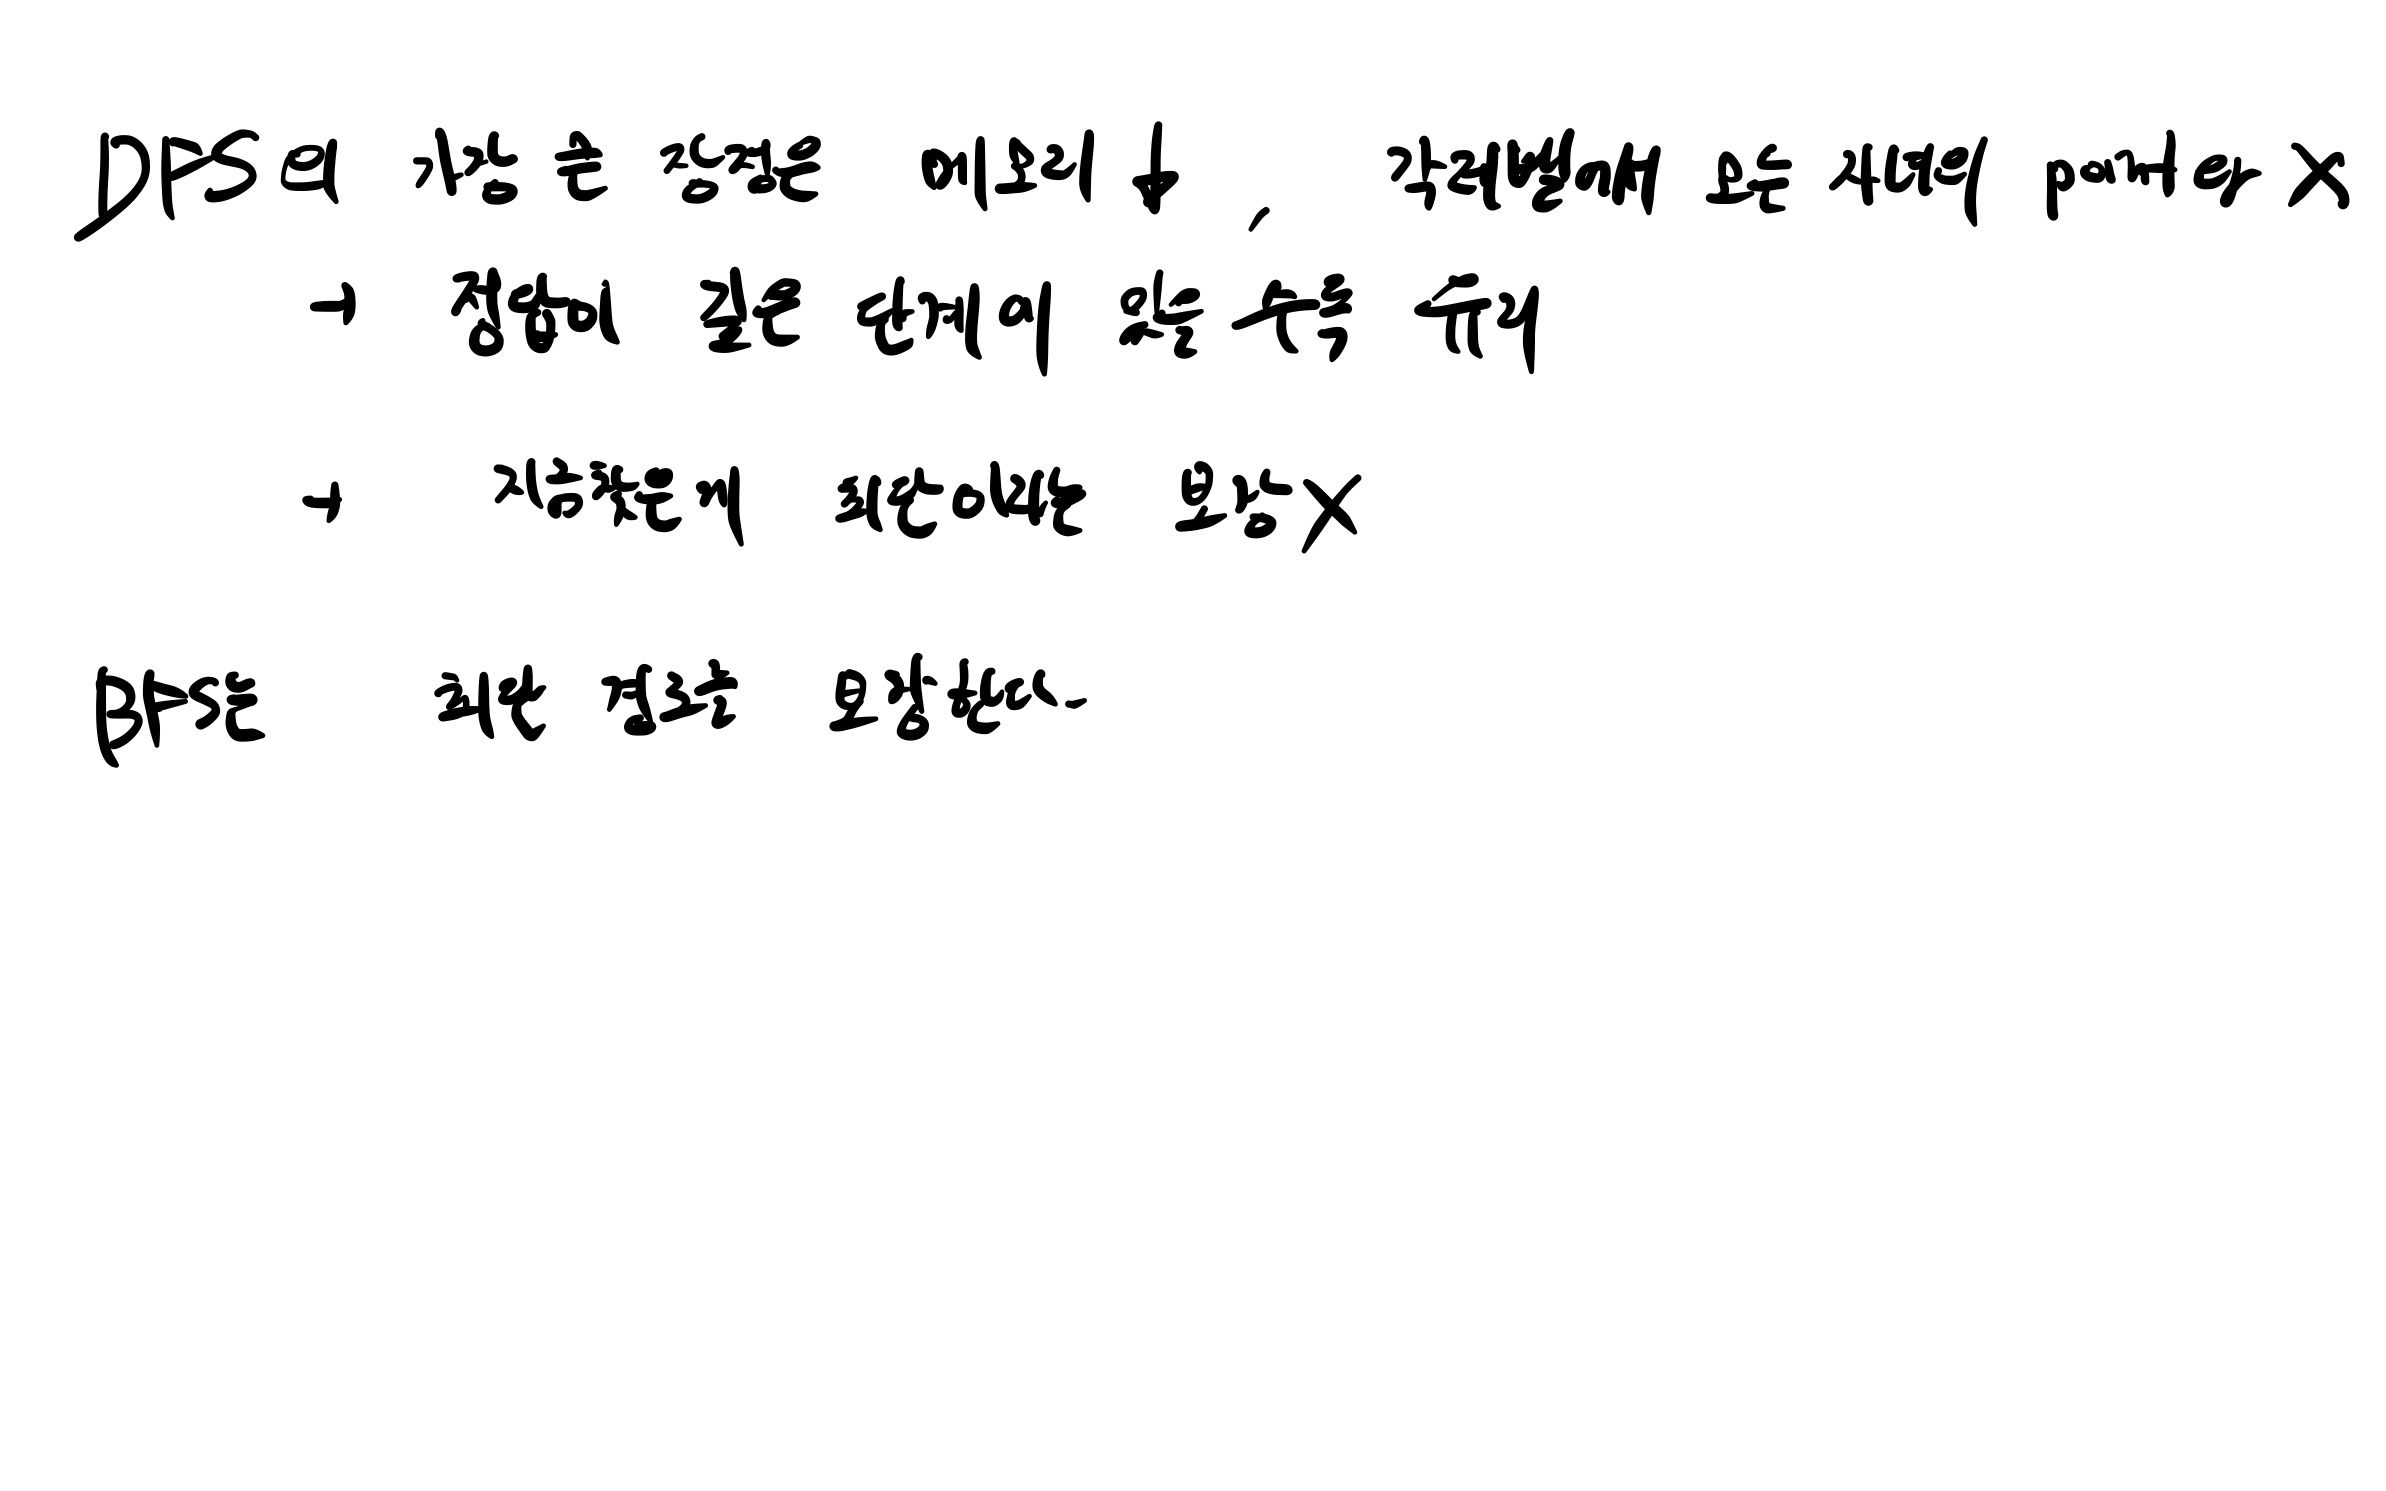 DFS의 가장 큰 장점은 메모리 ↓, 지름길에서 모든 상태 pointer X
→ 정답이 깊은 단계에 있을 수록 유리
→ 지름길이 최단이라는 보장 X
BFS는 최단 경로를 보장한다.